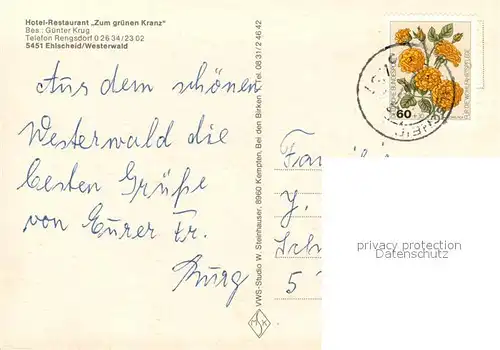 Hotel-Restaurant „Zum grünen Kranz"
Bes.: Günter Krug
Telefon Rengsdorf 0 26 34 / 23 02
5451 Ehlscheid/Westerwald
Aus dem schönen
Westerwald die
besten Grüße
von Eurer Fr.
Burg
VWS-Studio W. Steinhauser, 8960 Kempten, Bei den Birken Tel. 08 31 / 2 46 42
60
Fa
J.
Sch
5
privacy protection
Datenschutz